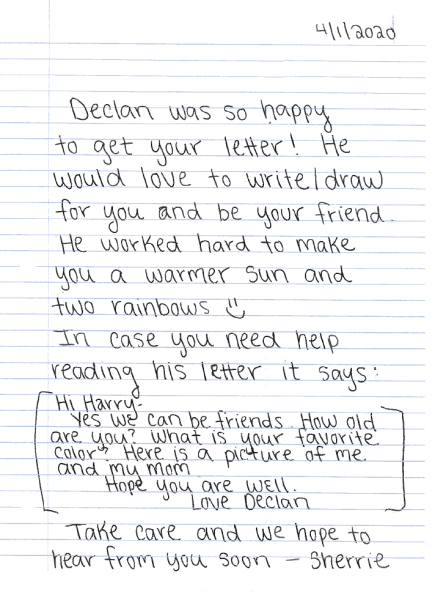 4/1/2020
Declan was so happy
to get your letter! He
would love to write/draw
for you and be your friend.
He worked hard to make
you a warmer sun and
two rainbows :)
In case you need help
reading his letter it says:
Hi Harry-
Yes we can be friends. How old
are you? What is your favorite
color? Here is a picture of me
and my mom
Hope you are well.
Love Declan
Take care and we hope to
hear from you soon - Sherrie